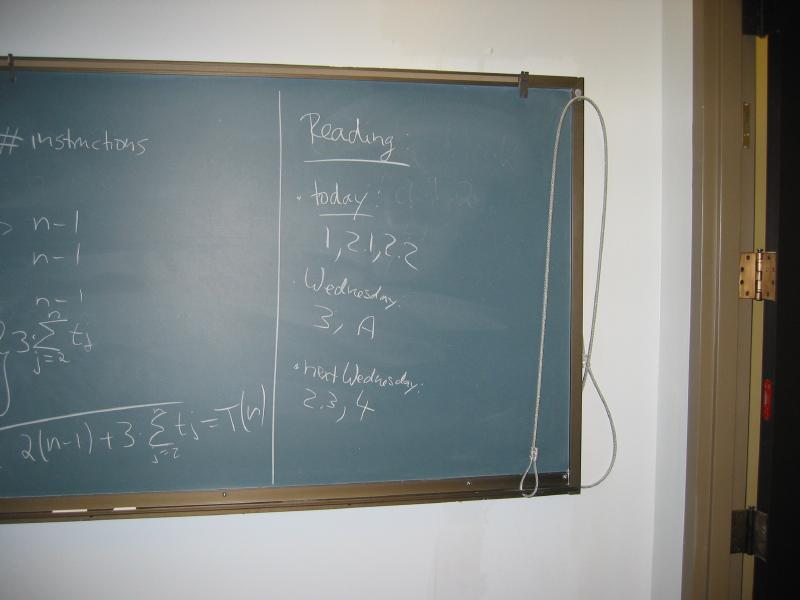 # instructions
n-1
n-1
n-1
3·∑ⁿⱼ₌₂ tⱼ
2(n-1) + 3·∑ⁿⱼ₌₂ tⱼ = T(n)
Reading:
· today:
1, 2.1, 2.2
· Wednesday:
3, A
· next Wednesday:
2.3, 4